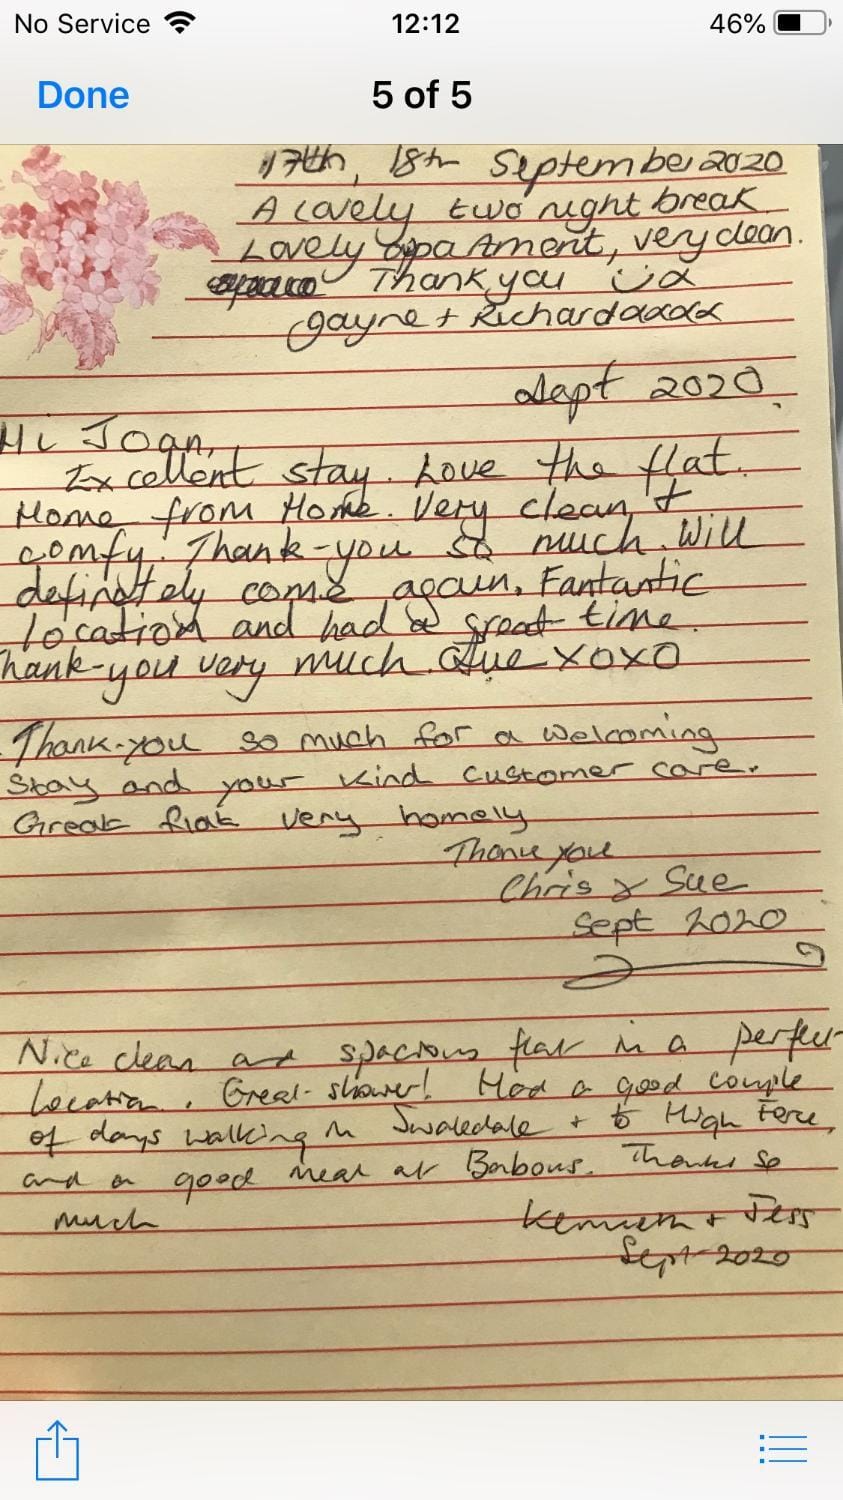 No Service 12:12 46%
Done 5 of 5
17th, 18th September 2020
A lovely two night break
Lovely apartment, very clean.
Thank you
Gayne + Richard xxxx
Sept 2020.
Hi Joan,
Excellent stay. Love the flat.
Home from Home. Very clean +
comfy. Thank-you so much. Will
definitely come again. Fantastic
location and had a great time.
Thank-you very much. Sue xoxo
Thank-you so much for a welcoming
stay and your kind customer care.
Great flat very homely
Thank you
Chris & Sue
Sept 2020
Nice clean and spacious flat in a perfect
location. Great shower! Had a good couple
of days walking in Swaledale + to High Force,
and a good meal at Babouls. Thanks so
much Kenneth + Jess
Sept 2020